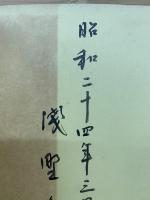 昭和二十四年三月
浅野